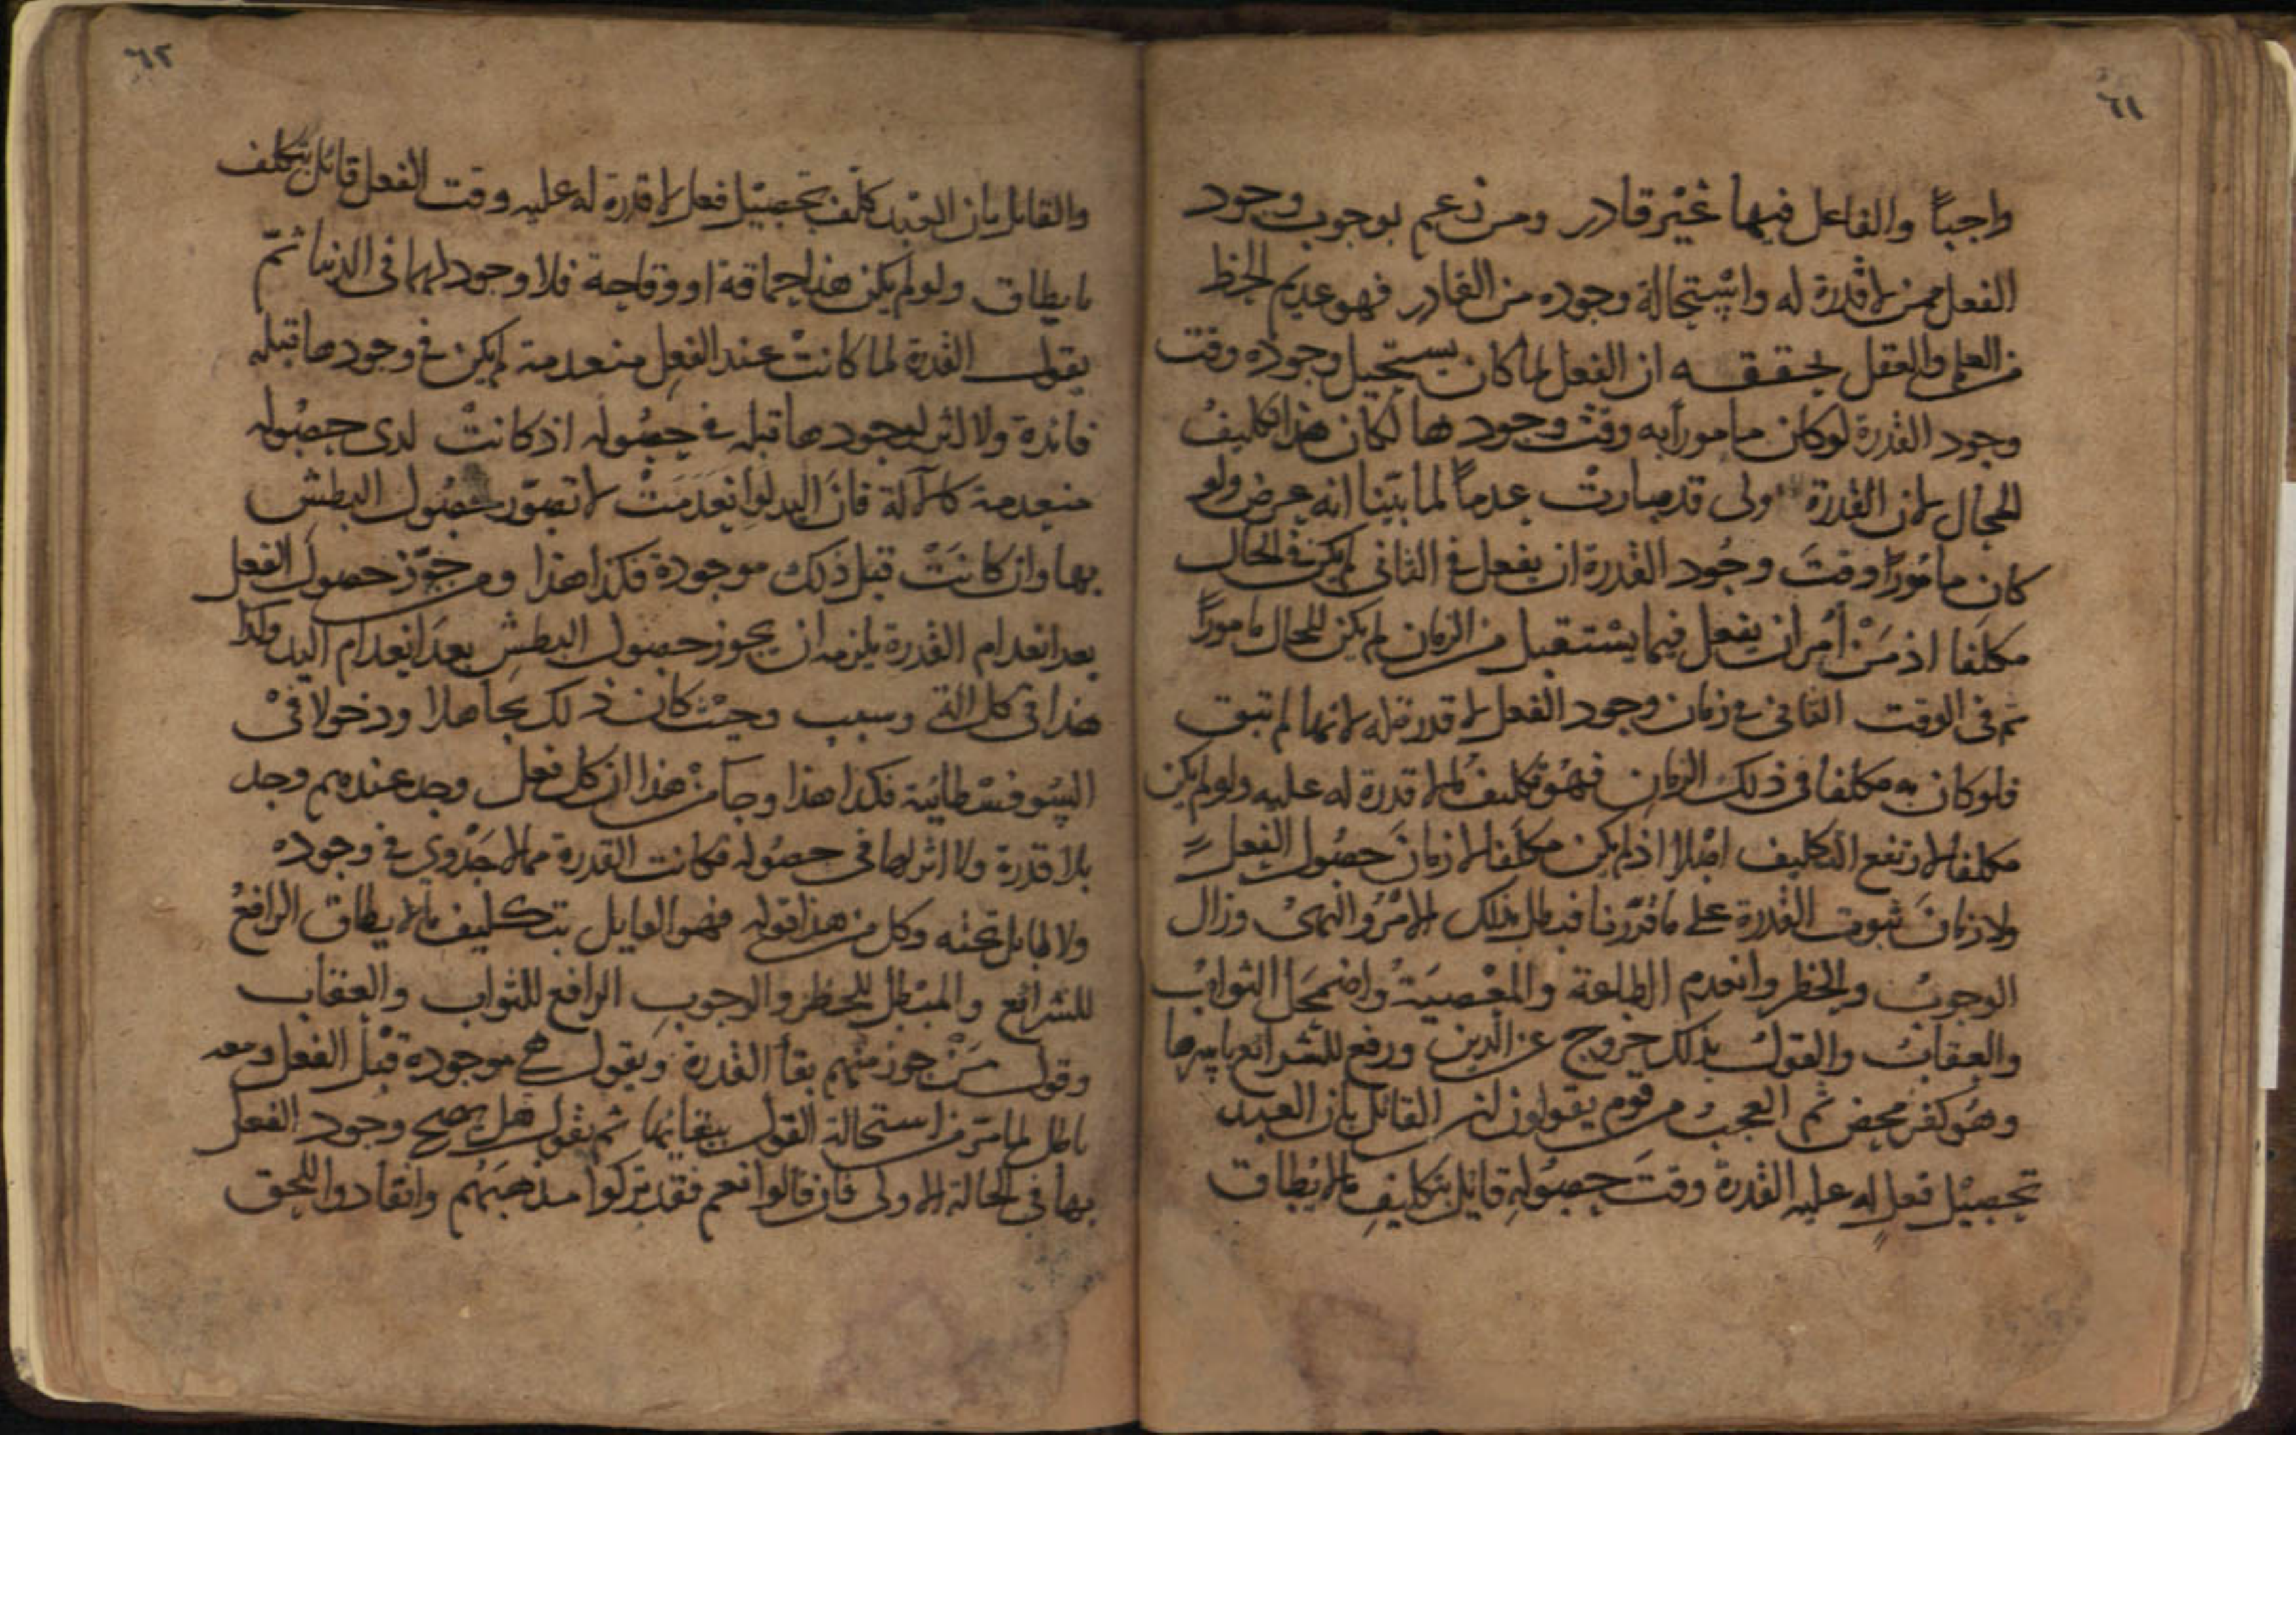 ٦١
واجباً والفاعل فيها غير قادر ومن زعم بوجوب وجود
الفعل ممن لا قدرة له واستحالة وجوده من القادر فهو عديم الحظ
من العلم والعقل يحققه ان الفعل لما كان يستحيل وجوده وقت
وجود القدرة لو كان مامورا به وقت وجودها لكان هذا تكليف
المحال لان القدرة الاولى قد صارت عدماً لما بيّنا انه عرض ولو
كان مامُوراً وقتَ وجُود القدرة ان يفعل في الثاني لم يكن في الحال
مكلفا اذ مَنْ أُمر ان يفعل فيما يستقبل من الزمان لم يكن للحال مامورًا
ثم في الوقت الثاني في زمان وجود الفعل لا قدرة له لانها لم تبق
فلو كان به مكلفا في ذلك الزمان فهو تكليف لمن لا قدرة له عليه ولو لم يكن
مكلفا لارتفع التكليف اصلا اذ لم يكن مكلفا لا زمان حصُول الفعل
ولا زمانَ ثبوت القدرة على ما قرّرنا فبطل بذلك الامْرُ والنهىُ وزال
الوجوبُ والحظر وانعدم الطاعة والمعْصيَةُ واضمحَل الثوابُ
والعقابُ والقولُ بذلك خروج عن الدين ورفع للشرائع باسرها
وهُو كفر محض ثم العجب من قوم يقولون ان القائل بان العبد
تحصيْل فعل له عليه القدرة وقتَ حصُولهِ قائل بتكليفِ ما لا يُطاق
٦٢
والقائل بان العبْد كلّف بتحصيْل فعل لا قدرة له عليه وقت الفعل قائل بتكليف
ما يطاق ولو لم يكن هذا حماقة او وقاحة فلا وجود لهما في الدنيا ثمّ
يقول القدرة لما كانتْ عند الفعل منعدمة لم يكن في وجودها قبله
فائدة ولا اثر لوجودها قبله في حصُوله اذ كانتْ لدى حصُوله
منعدمة كالآلة فانّ اليد لوِ انعَدَمَتْ لا تصوّر حصُول البطش
بها وان كانَتْ قبل ذلك موجودة فكذا هذا ومن جوّز حصول الفعل
بعد انعدام القدرة يلزمه ان يجوز حصول البطشِ بعدَ انعدام اليد وكذا
هذا في كل آلة وسبب وحيْث كان ذلك تجاهلا ودخولا فيْ
السُوفسْطائية فكذا هذا وجآ منْ هذا ان كل فعل وجد عندهم وجد
بلا قدرة ولا اثر لها في حصُوله فكانت القدرة مما لا جَدْوى في وجوده
ولا طايل تحته وكل من هذا قوله فهو القايل بتكليف ما لا يطاق الرافعُ
للشرائع والمبْطل للحظر والوجوبِ الرافع للثواب والعقاب
وقول مَنْ جوز منهم بقآ القدرة ويقول هي موجودة قبْل الفعل ومعه
باطل لما مرّ من استحالة القول ببقائها ثم نقول هل يصح وجود الفعل
بها في الحالة الاولى فان قالوا نعم فقد تركوا مذهبَهُم وانقادوا للحق